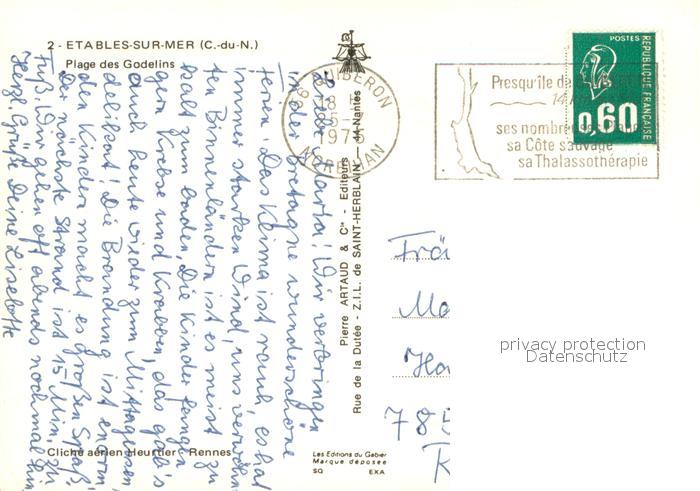 2 - ETABLES-SUR-MER (C.-du-N.)
Plage des Godelins
Liebe Maria! Wir verbringen
in der Bretagne wunderschöne
Ferien. Das Klima ist rauh, es hat
immer starken Wind, uns verwöhn
te Binnenländern ist es meist zu
kalt zum baden. Die Kinder fangen
gern Krebse und Krabben, das gab's
auch heute wieder zum Mittagessen,
delikat! Die Brandung ist enorm
den Kindern macht es großen Spaß.
Der nächste Strand ist 15 Min. zu
Fuß. Wir gehen oft abends nochmal hin.
Herzl. Grüße Deine Liselotte
Cliché aérien Heurtier - Rennes
Pierre ARTAUD & Cie - Editeurs
Rue de la Dutée - Z.I.L. de SAINT-HERBLAIN - 44-Nantes
Les Editions du Gabier
Marque déposée
SQ EXA
QUIBERON
18 H
MORBIHAN
Presqu'île de
ses nombreuses
sa Côte sauvage
sa Thalassothérapie
POSTES
REPUBLIQUE FRANÇAISE
0,60
Frä
Ma
Ha
785
privacy protection
Datenschutz